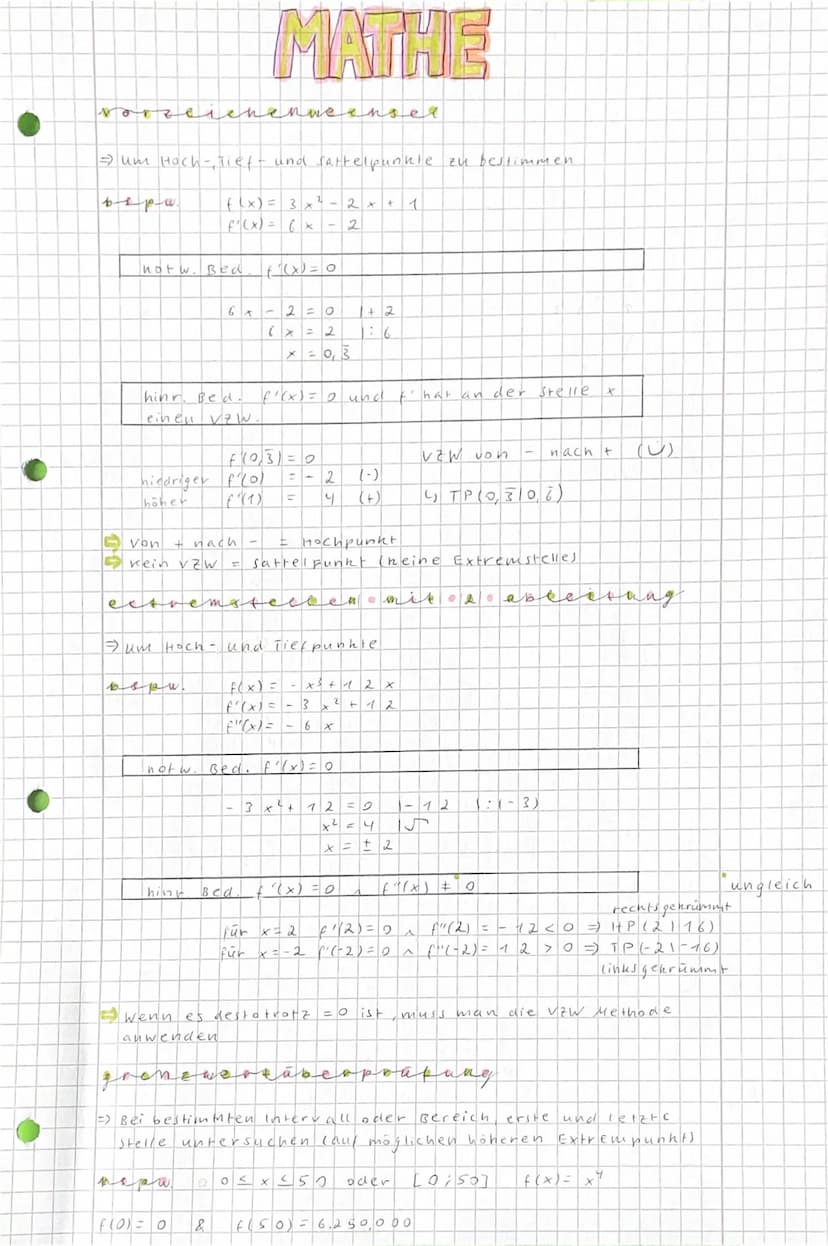 MATHE
Vorzeichenwechsel
⇒ um Hoch-, Tief- und Sattelpunkte zu bestimmen
bspw. f(x) = 3x² - 2x + 1
f'(x) = 6x - 2
notw. Bed. f'(x) = 0
6x - 2 = 0 |+2
6x = 2 |:6
x = 0,3̅
hinr. Bed. f'(x) = 0 und f' hat an der Stelle x
einen VZW.
f'(0,3̅) = 0 VZW von - nach + (∪)
niedriger f'(0) = -2 (-)
höher f'(1) = 4 (+) ↳ TP(0,3̅|0,6̅)
⇒ von + nach - = Hochpunkt
⇒ Kein VZW = Sattelpunkt (keine Extremstelle)
Extremstellen mit 2. Ableitung
⇒ um Hoch- und Tiefpunkte
bspw. f(x) = -x³ + 12x
f'(x) = -3x² + 12
f''(x) = -6x
notw. Bed. f'(x) = 0
-3x² + 12 = 0 |-12 |:(-3)
x² = 4 |√
x = ± 2
hinr. Bed. f'(x) = 0 ∧ f''(x) ≠ 0
ungleich
rechtsgekrümmt
für x = 2 f'(2) = 0 ∧ f''(2) = -12 < 0 ⇒ HP(2|16)
für x = -2 f'(-2) = 0 ∧ f''(-2) = 12 > 0 ⇒ TP(-2|-16)
linksgekrümmt
⇒ wenn es destotrotz = 0 ist, muss man die VZW Methode
anwenden
Grenzwertüberprüfung
⇒ Bei bestimmten Intervall oder Bereich, erste und letzte
Stelle untersuchen (auf möglichen höheren Extrempunkt)
bspw. 0 ≤ x ≤ 50 oder [0;50] f(x) = x⁴
f(0) = 0 & f(50) = 6.250.000